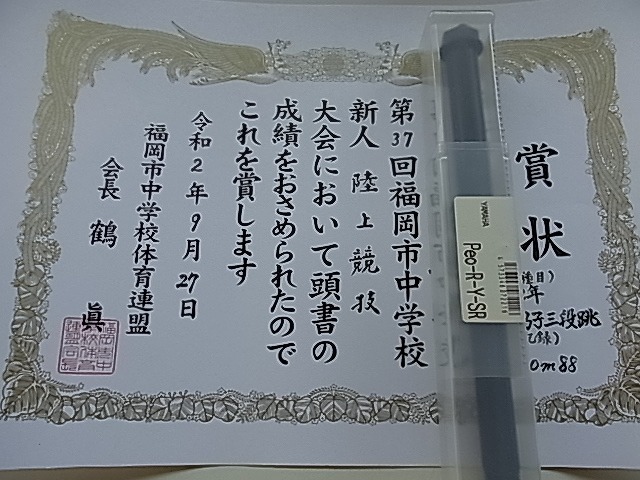 賞状
種目)
年
子三段跳
記録)
0m88
第37回福岡市中学校
新人陸上競技
大会において頭書の
成績をおさめられたので
これを賞します
令和2年9月27日
福岡市中学校体育連盟
会長 鶴 眞
YAMAHA
Peo-R-Y-SR